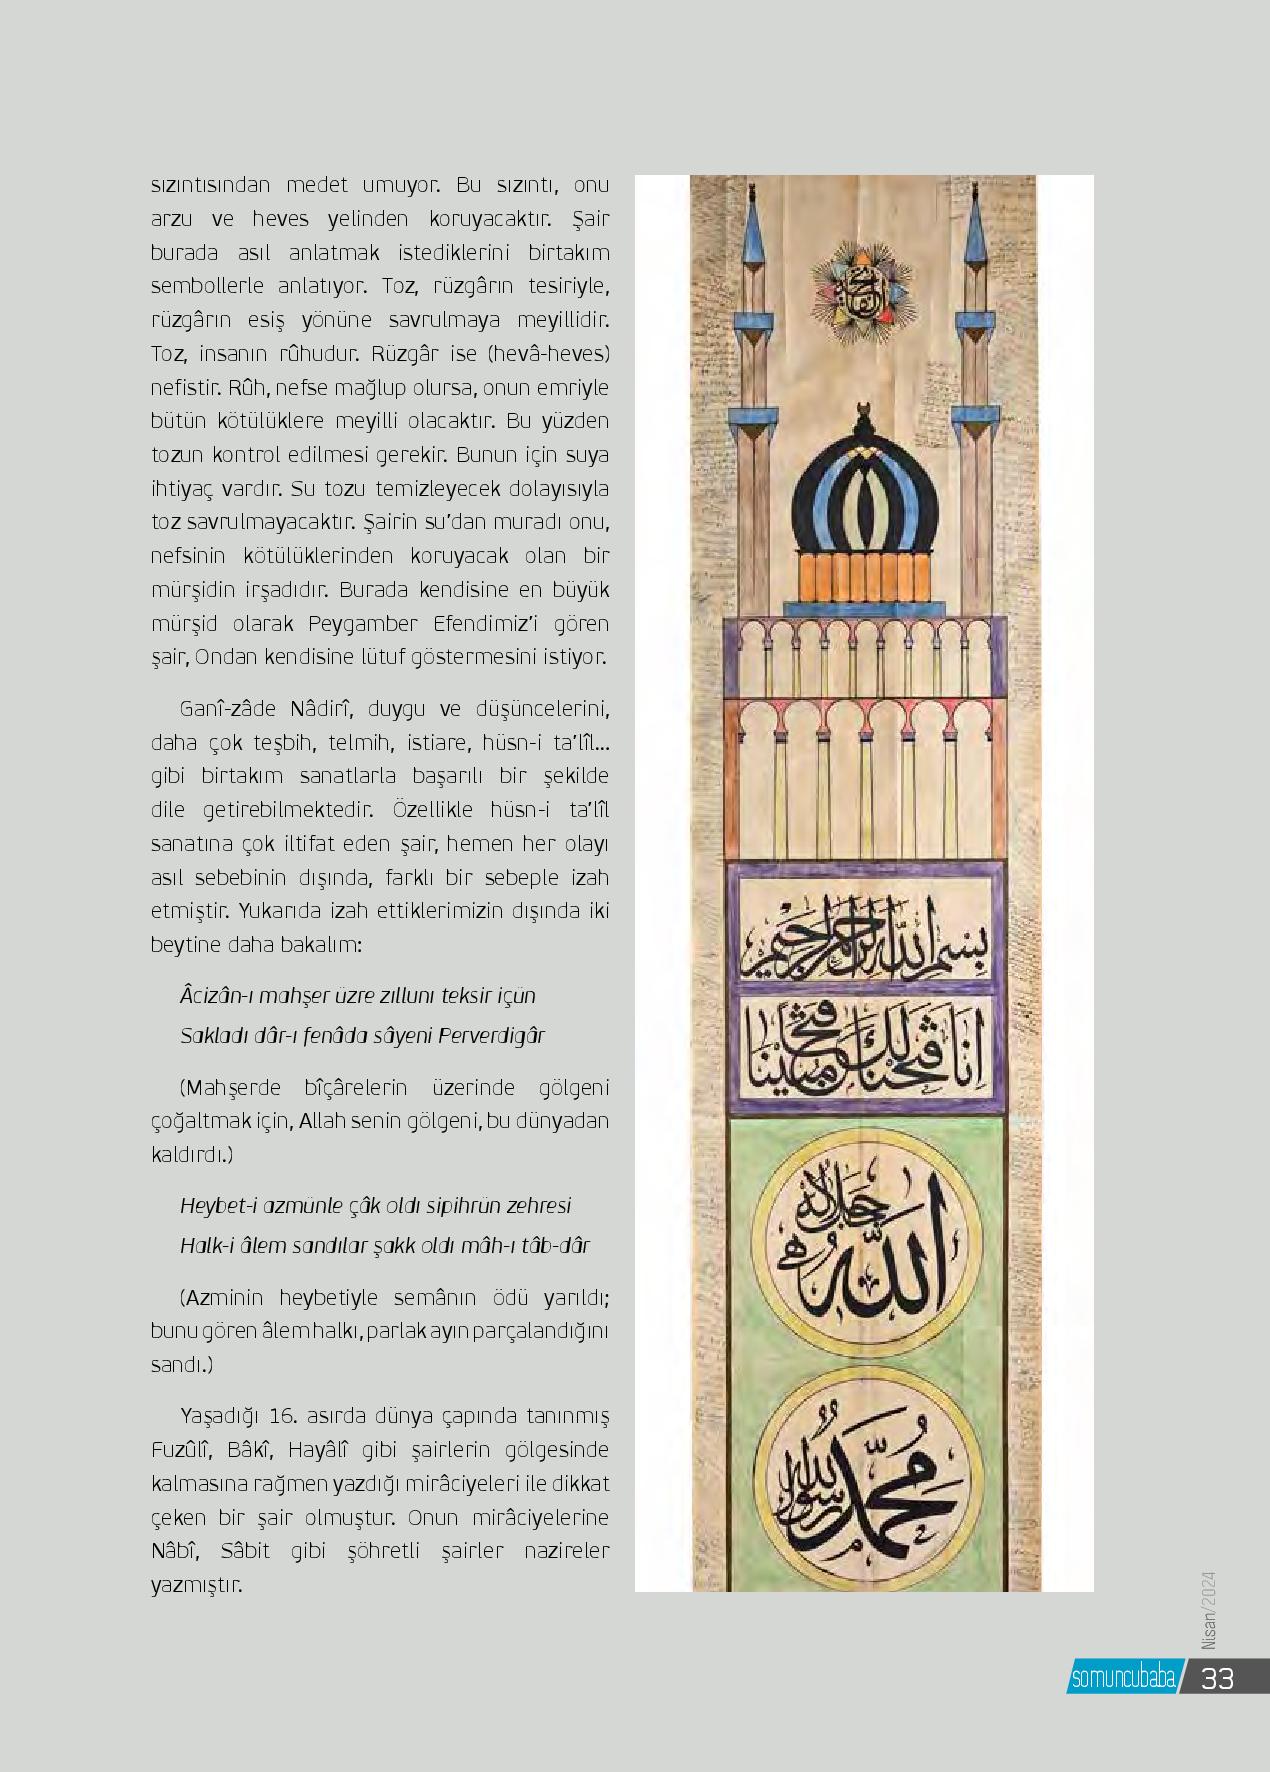 sızıntısından medet umuyor. Bu sızıntı, onu
arzu ve heves yelinden koruyacaktır. Şair
burada asıl anlatmak istediklerini birtakım
sembollerle anlatıyor. Toz, rüzgârın tesiriyle,
rüzgârın esiş yönüne savrulmaya meyillidir.
Toz, insanın rûhudur. Rüzgâr ise (hevâ-heves)
nefistir. Rûh, nefse mağlup olursa, onun emriyle
bütün kötülüklere meyilli olacaktır. Bu yüzden
tozun kontrol edilmesi gerekir. Bunun için suya
ihtiyaç vardır. Su tozu temizleyecek dolayısıyla
toz savrulmayacaktır. Şairin su’dan muradı onu,
nefsinin kötülüklerinden koruyacak olan bir
mürşidin irşadıdır. Burada kendisine en büyük
mürşid olarak Peygamber Efendimiz’i gören
şair, Ondan kendisine lütuf göstermesini istiyor.
Ganî-zâde Nâdirî, duygu ve düşüncelerini,
daha çok teşbih, telmih, istiare, hüsn-i ta’lîl...
gibi birtakım sanatlarla başarılı bir şekilde
dile getirebilmektedir. Özellikle hüsn-i ta’lîl
sanatına çok iltifat eden şair, hemen her olayı
asıl sebebinin dışında, farklı bir sebeple izah
etmiştir. Yukarıda izah ettiklerimizin dışında iki
beytine daha bakalım:
Âcizân-ı mahşer üzre zıllunı teksir içün
Sakladı dâr-ı fenâda sâyeni Perverdigâr
(Mahşerde bîçârelerin üzerinde gölgeni
çoğaltmak için, Allah senin gölgeni, bu dünyadan
kaldırdı.)
Heybet-i azmünle çâk oldı sipihrün zehresi
Halk-i âlem sandılar şakk oldı mâh-ı tâb-dâr
(Azminin heybetiyle semânın ödü yarıldı;
bunu gören âlem halkı, parlak ayın parçalandığını
sandı.)
Yaşadığı 16. asırda dünya çapında tanınmış
Fuzûlî, Bâkî, Hayâlî gibi şairlerin gölgesinde
kalmasına rağmen yazdığı mirâciyeleri ile dikkat
çeken bir şair olmuştur. Onun mirâciyelerine
Nâbî, Sâbit gibi şöhretli şairler nazireler
yazmıştır.
بسم الله الرحمن الرحيم
انا فتحنا لك فتحا مبينا
الله جل جلاله
محمد رسول الله
Nisan/2024
somuncubaba 33